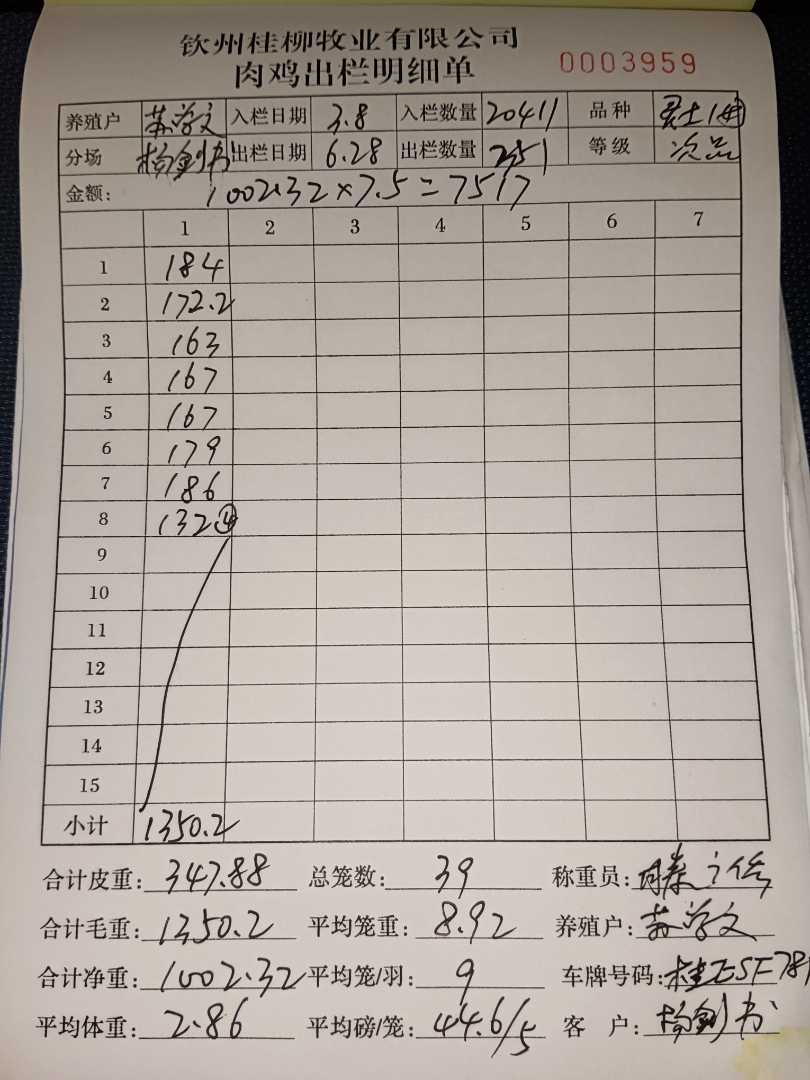 钦州桂柳牧业有限公司
肉鸡出栏明细单 0003959
养殖户 苏学文 入栏日期 3.8 入栏数量 20411 品种
分场 杨剑书 出栏日期 6.28 出栏数量 351 等级 次品
金额: 1002.32×7.5=7517
1 2 3 4 5 6 7
1 184
2 172.2
3 163
4 167
5 167
6 179
7 186
8 132 ④
9
10
11
12
13
14
15
小计 1350.2
合计皮重: 347.88 总笼数: 39 称重员:
合计毛重: 1350.2 平均笼重: 8.92 养殖户: 苏学文
合计净重: 1002.32 平均笼/羽: 9 车牌号码:
平均体重: 2.86 平均磅/笼: 44.6/5 客户: 杨剑书